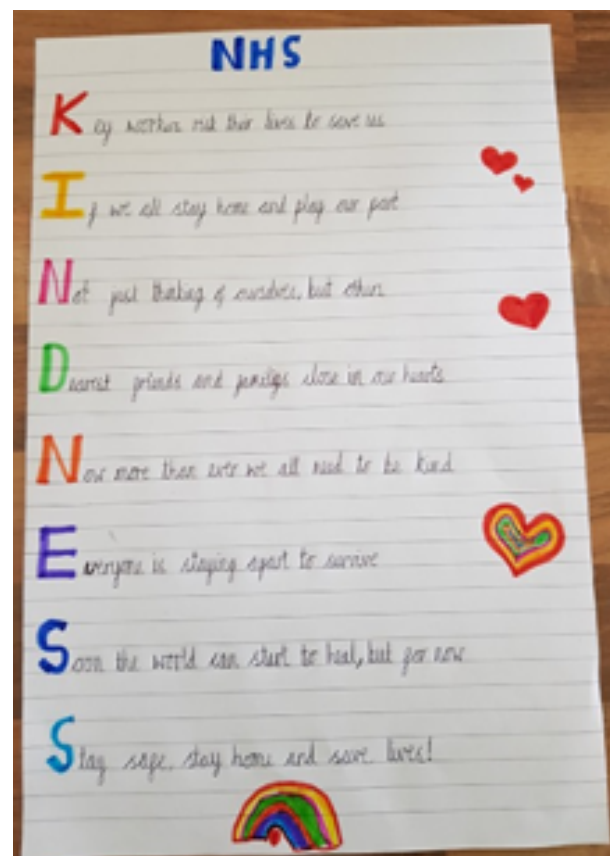 NHS
Key workers risk their lives to save us
If we all stay home and play our part
Not just thinking of ourselves, but others
Dearest friends and familys close in our hearts
Now more than ever we all need to be kind
Everyone is staying apart to survive
Soon the world can start to heal, but for now
Stay safe, stay home and save lives!